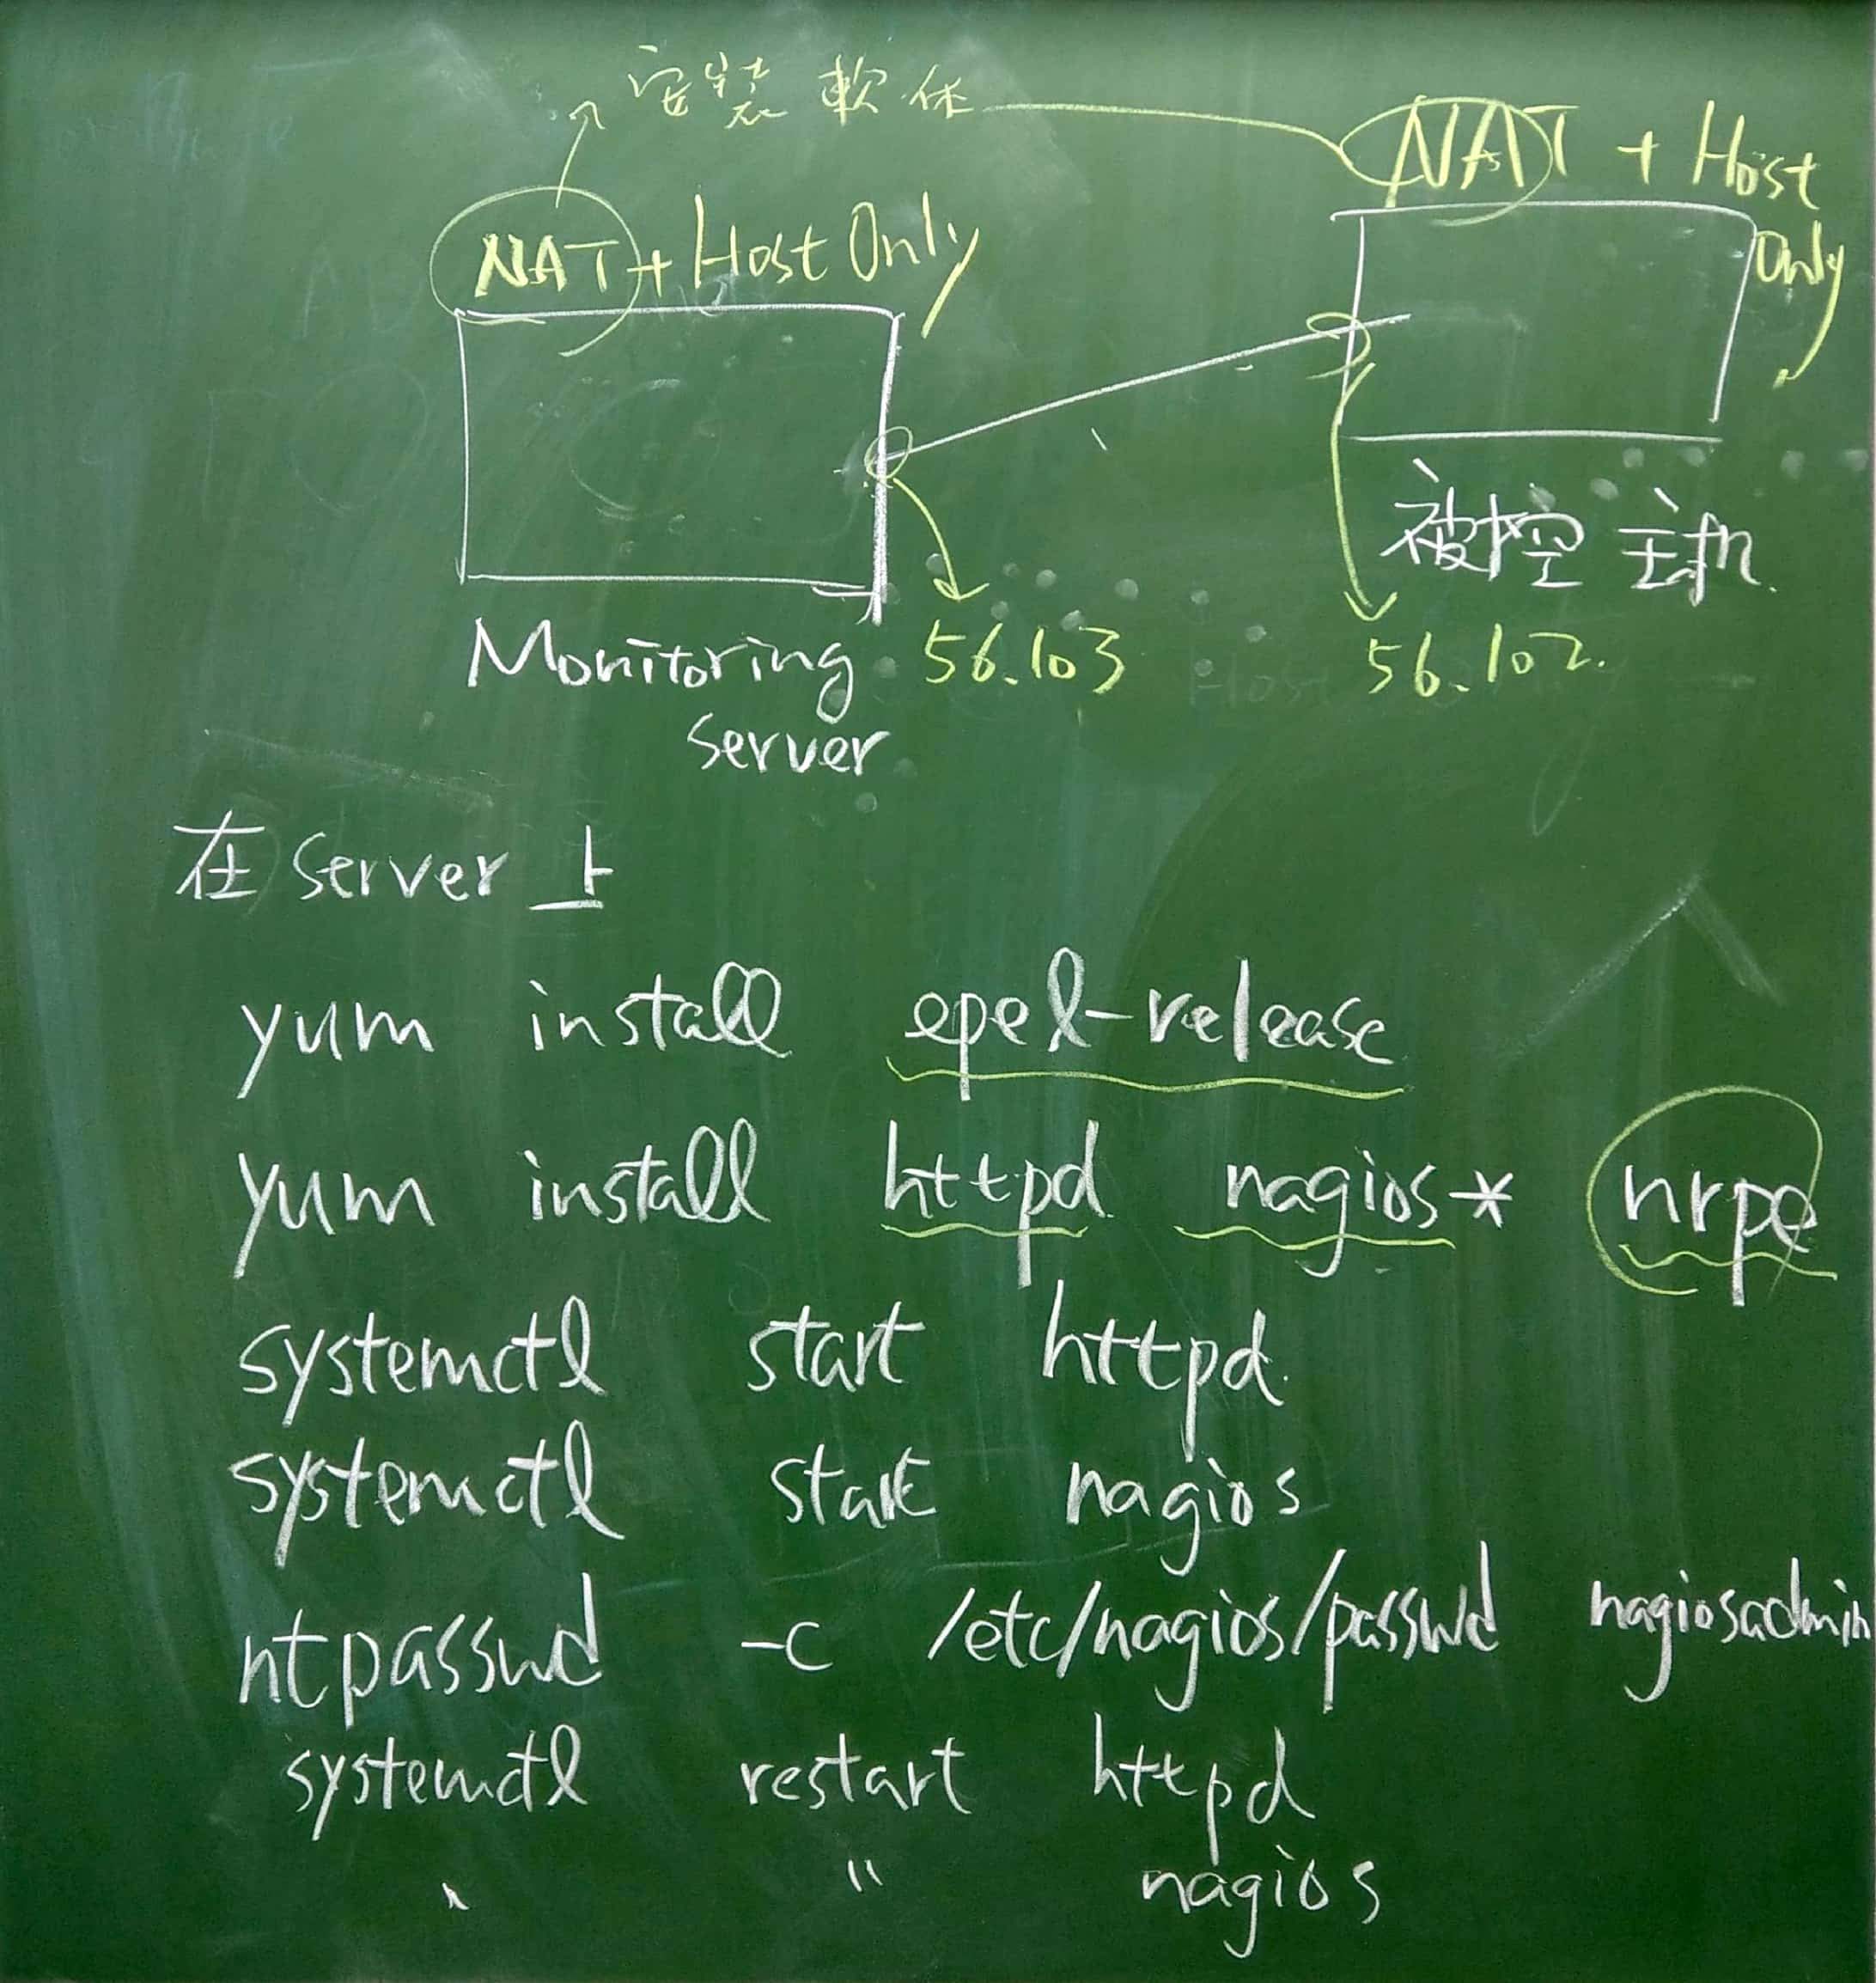 安裝軟体
NAT + Host Only
NAT + Host
Only
被控主机
Monitoring
server
56.103
56.102
在 server 上
yum install epel-release
yum install httpd nagios* nrpe
systemctl start httpd
systemctl start nagios
htpasswd -c /etc/nagios/passwd nagiosadmin
systemctl restart httpd
" " nagios